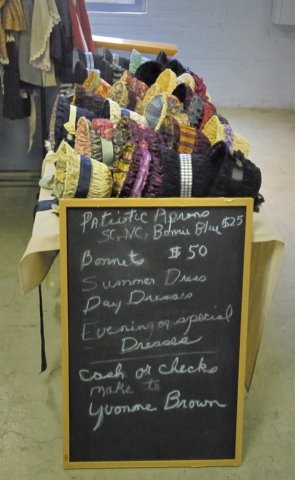 Patriotic Aprons
SC, NC, Bonnie Blue $25
Bonnets $50
Summer Dress
Day Dresses
Evening or special
Dresses
Cash or checks
make to
Yvonne Brown